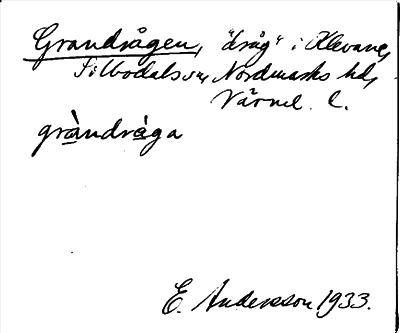 Grandrågen, "dråg" i Klevane,
Sillbodals sn, Nordmarks hd,
Värml. l.
gràndrȧga
E. Andersson 1933.